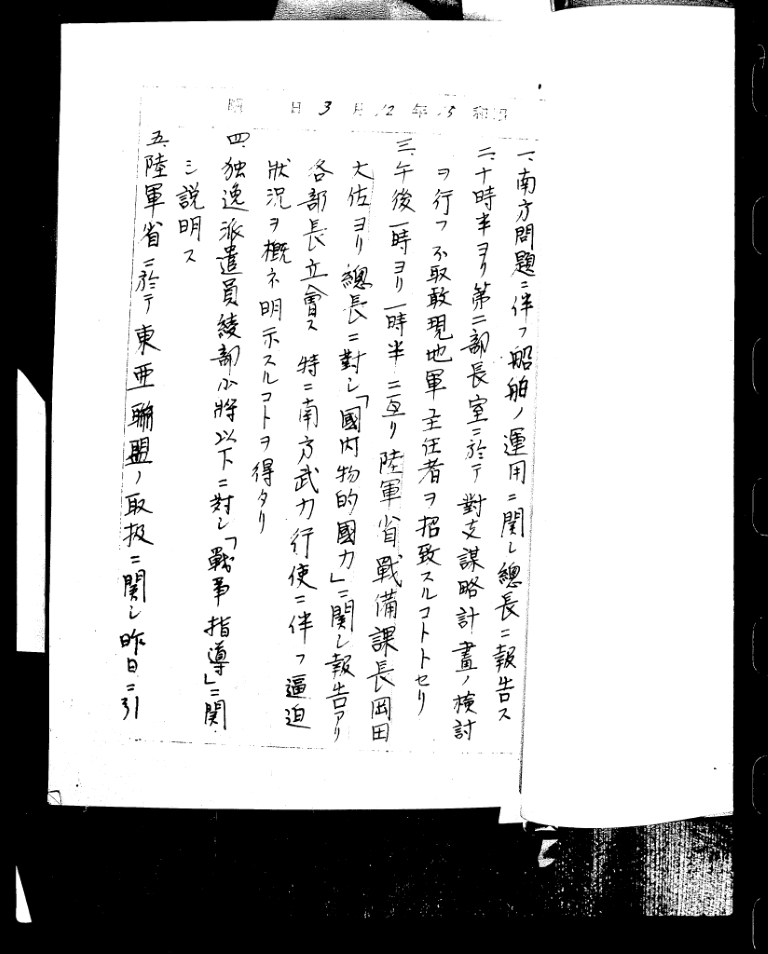 昭和15年12月3日 晴
一、南方問題ニ伴フ船舶ノ運用ニ関シ總長ニ報告ス
二、十時半ヨリ第二部長室ニ於テ對支謀略計畫ノ検討
ヲ行フ 不取敢現地軍主任者ヲ招致スルコトトセリ
三、午後一時ヨリ一時半ニ亙リ陸軍省戰備課長岡田
大佐ヨリ總長ニ對シ「國内物的國力」ニ関シ報告アリ
各部長立會ス 特ニ南方武力行使ニ伴フ逼迫
狀況ヲ概ネ明示スルコトヲ得タリ
四、独逸派遣員綾部少将以下ニ対シ「戰爭指導」ニ関
シ説明ス
五、陸軍省ニ於テ東亜聯盟ノ取扱ニ関シ昨日ニ引